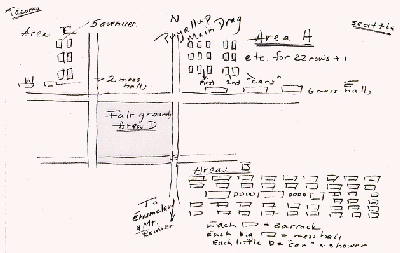 Tacoma
N
Seattle
Area
5 avenues
Puyallup
Main Drag
Area H
etc. for 22 rows + 1
2 mess
halls
W
First 2nd "Cans"
E
6 mess halls
Fair grounds
Area D
Area B
To
Enumclaw
& Mt.
Rainier
Each = barrack
Each big = mess hall
Each little = "can" & shower